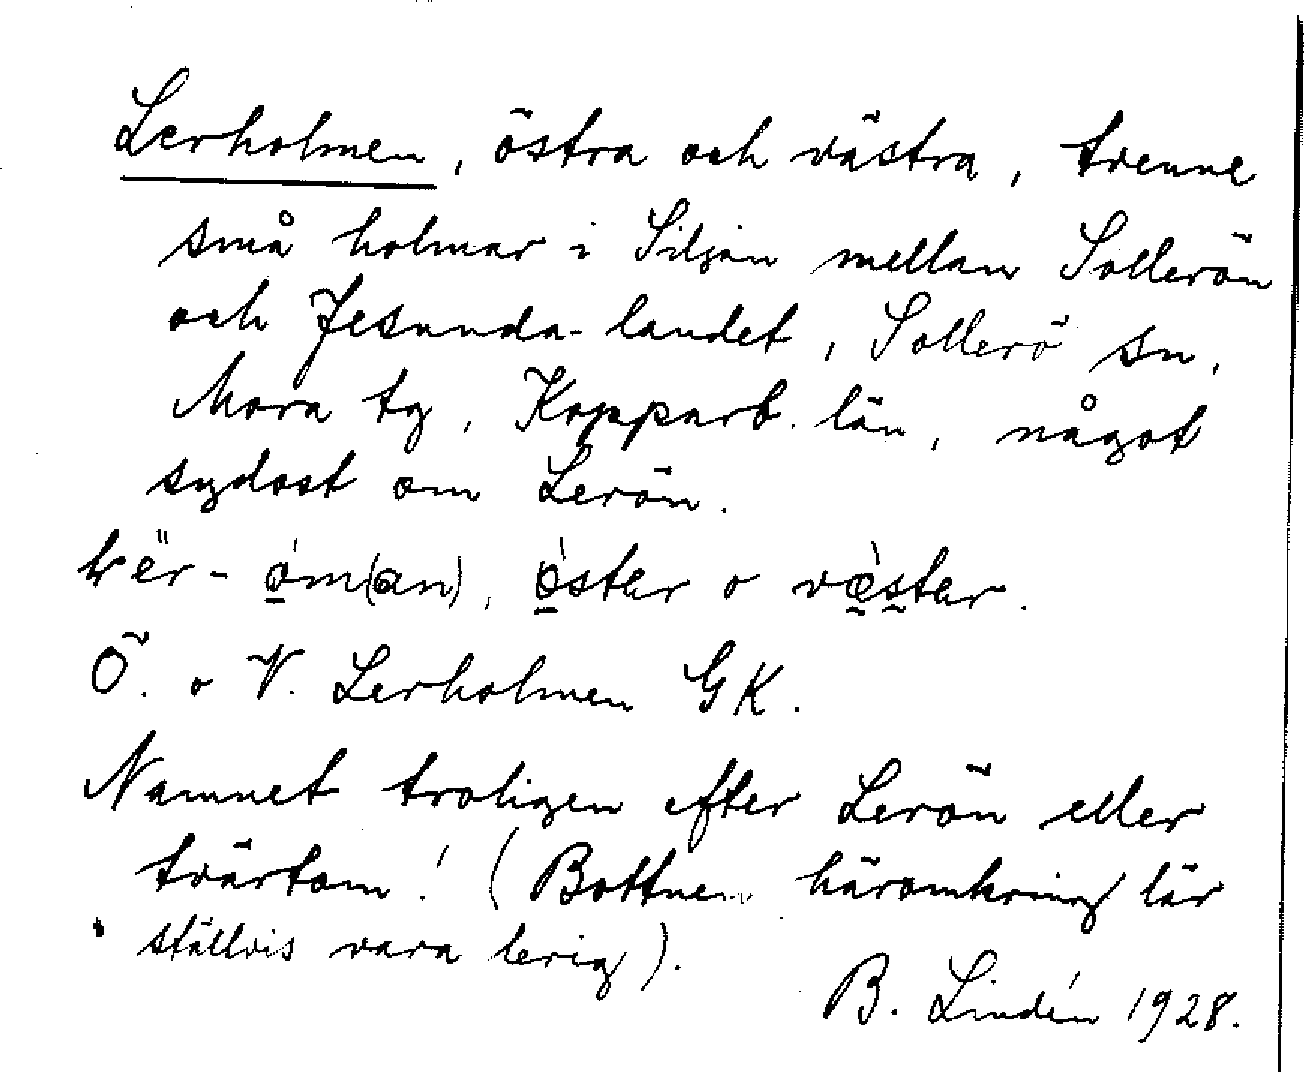 Lerholmen, östra och västra, tvenne
små holmar i Siljan mellan Sollerön
och Jesunda-landet, Sollerö sn,
Mora tg, Kopparb. län, något
sydost om Lerön.
östar o væstar.
Ö. o V. Lerholmen GK.
Namnet troligen efter Lerön eller
tvärtom! (Bottnen häromkring lär
ställvis vara lerig).
B. Lindén 1928.